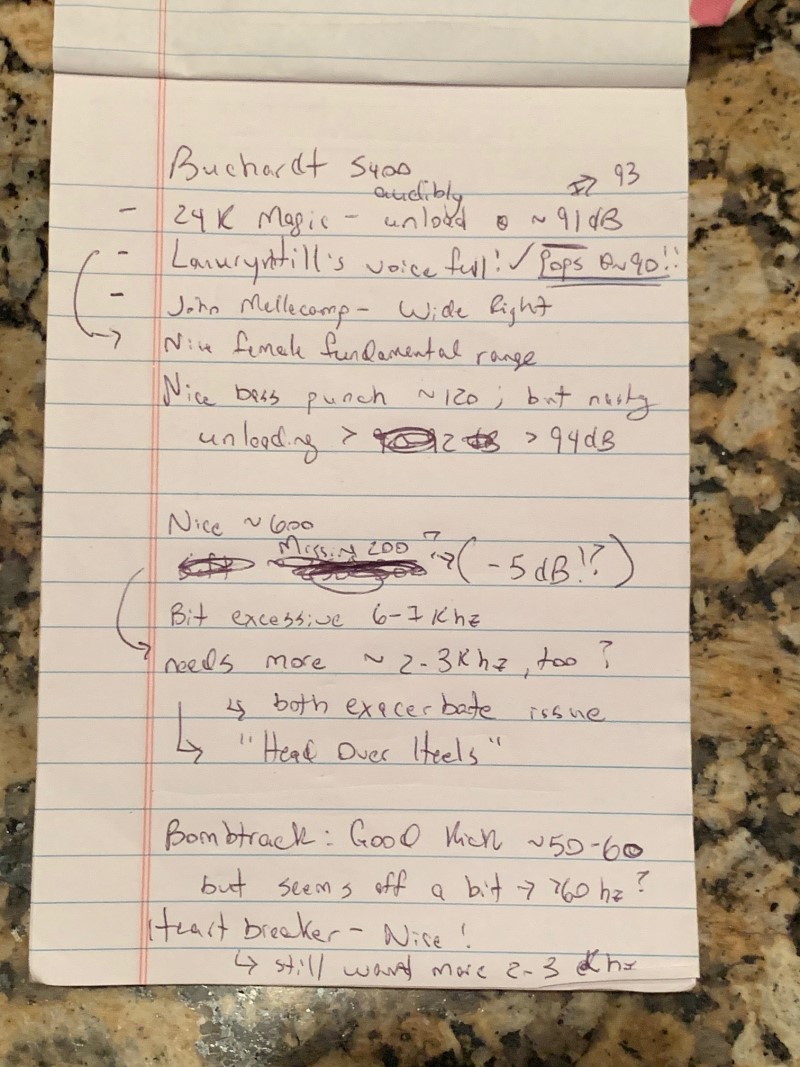 Buchardt S400
audibly → 93
- 24K Magic - unload @ ~91dB
- LauurynHill's voice full! ✓ Pops @~90!!
- John Mellecamp - Wide Right
→ Nice female fundamental range
Nice bass punch ~120; but nasty
unloading > > 94dB
Nice ~600
Missing 200 ? → (-5dB!?)
Bit excessive 6-7Khz
→ needs more ~ 2-3Khz, too?
↳ both exacerbate issue
↳ "Head Over Heels"
Bombtrack: Good Kick ~50-60
but seems off a bit → >60hz?
Heart breaker - Nice!
↳ still want more 2-3 Khz